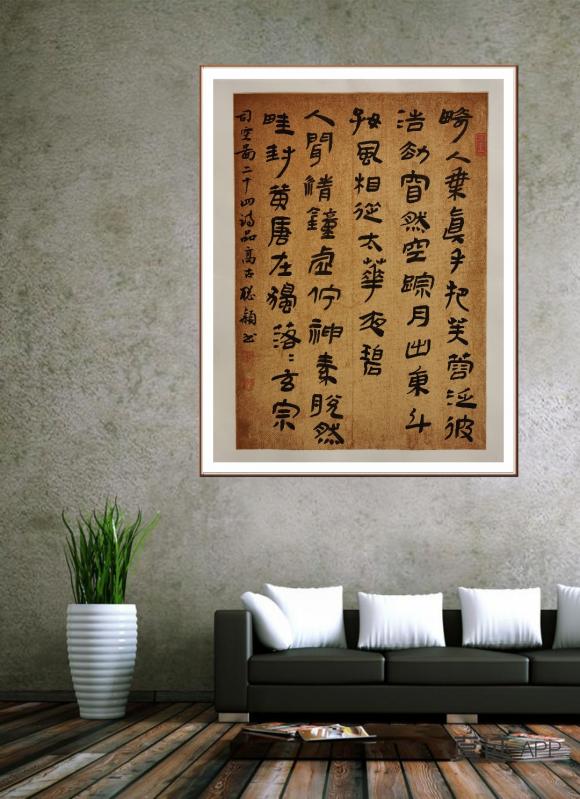 畸人乗眞手把芙蓉泛彼
浩劫窅然空踪月出東斗
好風相從太華夜碧
人聞清鐘虛佇神素脫然
畦封黄唐在獨落〻玄宗
司空圖二十四詩品高古 聪颖书
APP